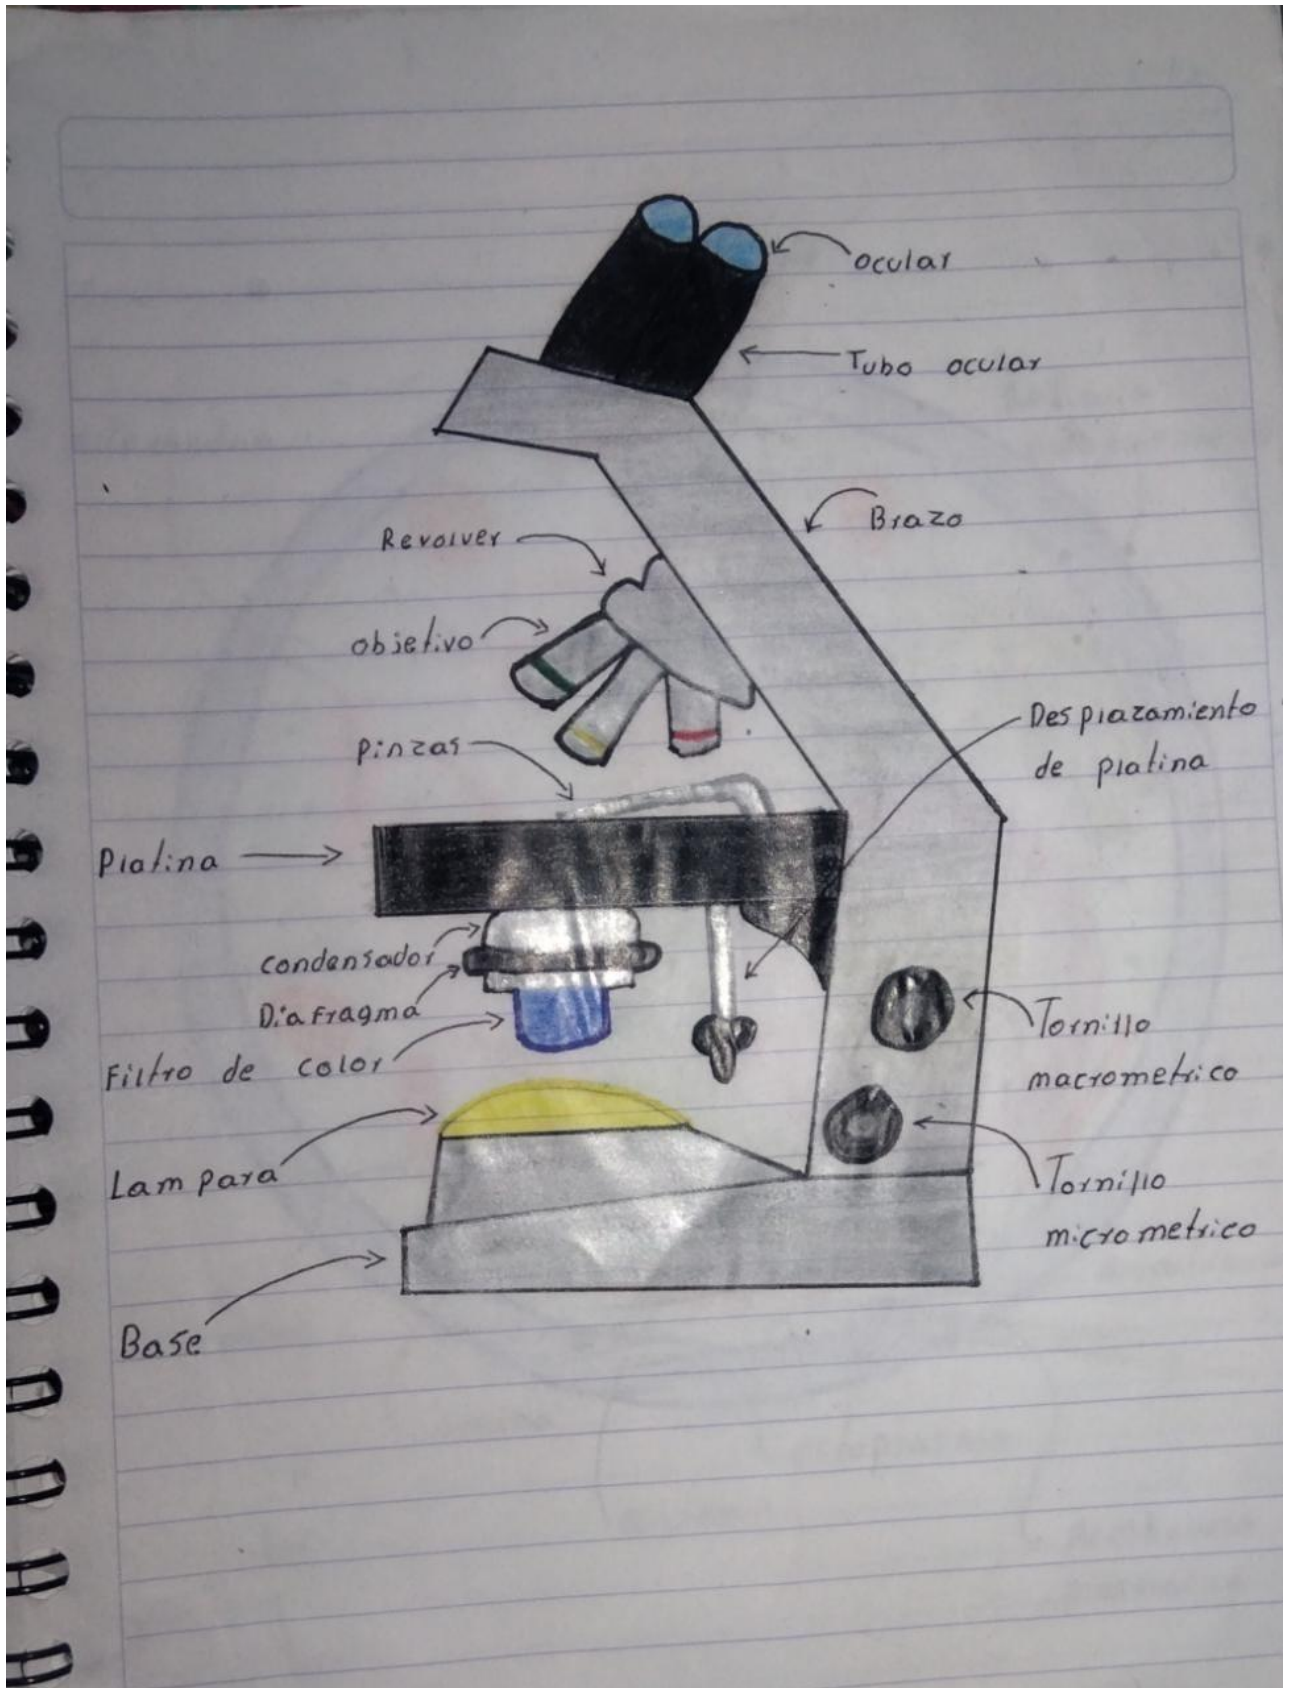 ocular
Tubo ocular
Brazo
Revolver
objetivo
Desplazamiento
de platina
pinzas
Platina
condensador
Diafragma
Filtro de color
Tornillo
macrometrico
Lampara
Tornillo
micrometrico
Base